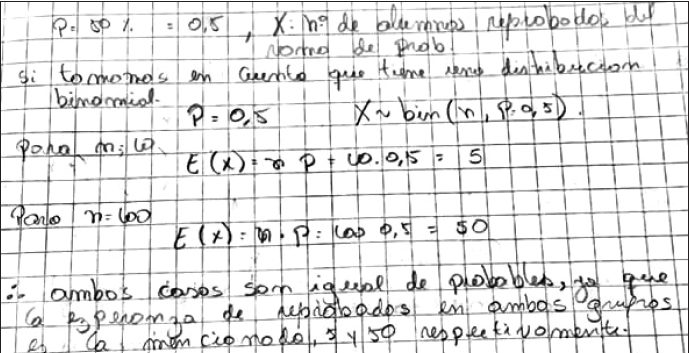 P= 50 % = 0,5 , X: nº de alumnos reprobados del
ramo de prob
si tomamos en cuenta que tiene una distribución
binomial.
P = 0,5 X ~ bin(n, P=0,5).
Para n=10
E(x) = n P = 10.0,5 = 5
Para n=100
E(x) = n . P = 100 0,5 = 50
∴ ambos casos son igual de probables, ya que
la esperanza de reprobados en ambos grupos
es la mencionada, 5 y 50 respectivamente.